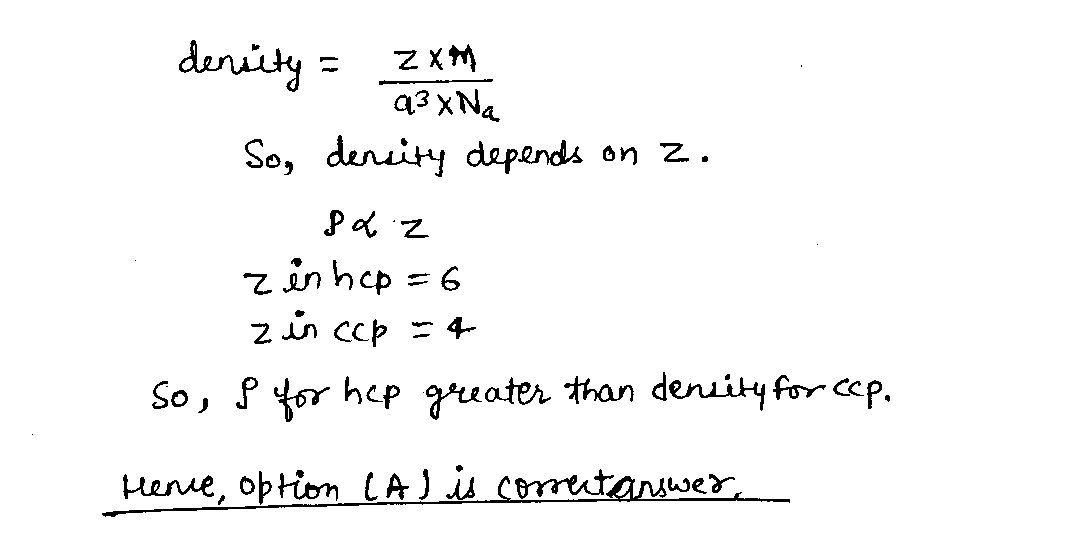 density = z × M
a3 × Na
So, density depends on z.
ρ ∝ z
z in hcp = 6
z in ccp = 4
So, ρ for hcp greater than density for ccp.
Hence, option (A) is correct answer.